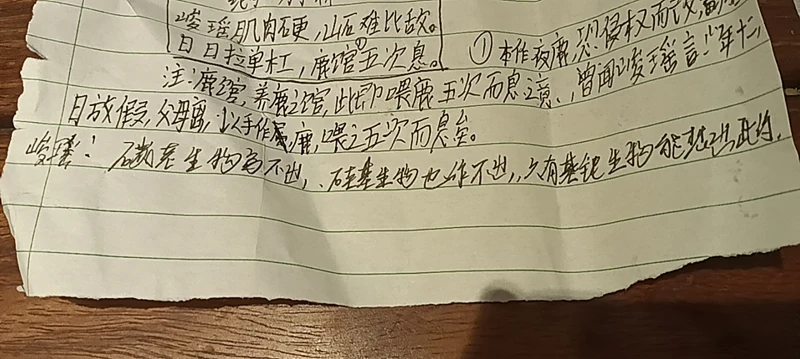 峻瑶肌肉硬，山石难比敌。
日日拉单杠，鹿馆五次息。
①本作夜鹿，恐侵权而改
注：鹿馆，养鹿之馆，此即喂鹿五次而息之意，曾闻峻瑶言：少年十二
日放假，父母离，以手作鹿，喂之五次而息矣。
峻瑶：碳基生物写不出，硅基生物也作不出，只有基铌生物能想出此行.